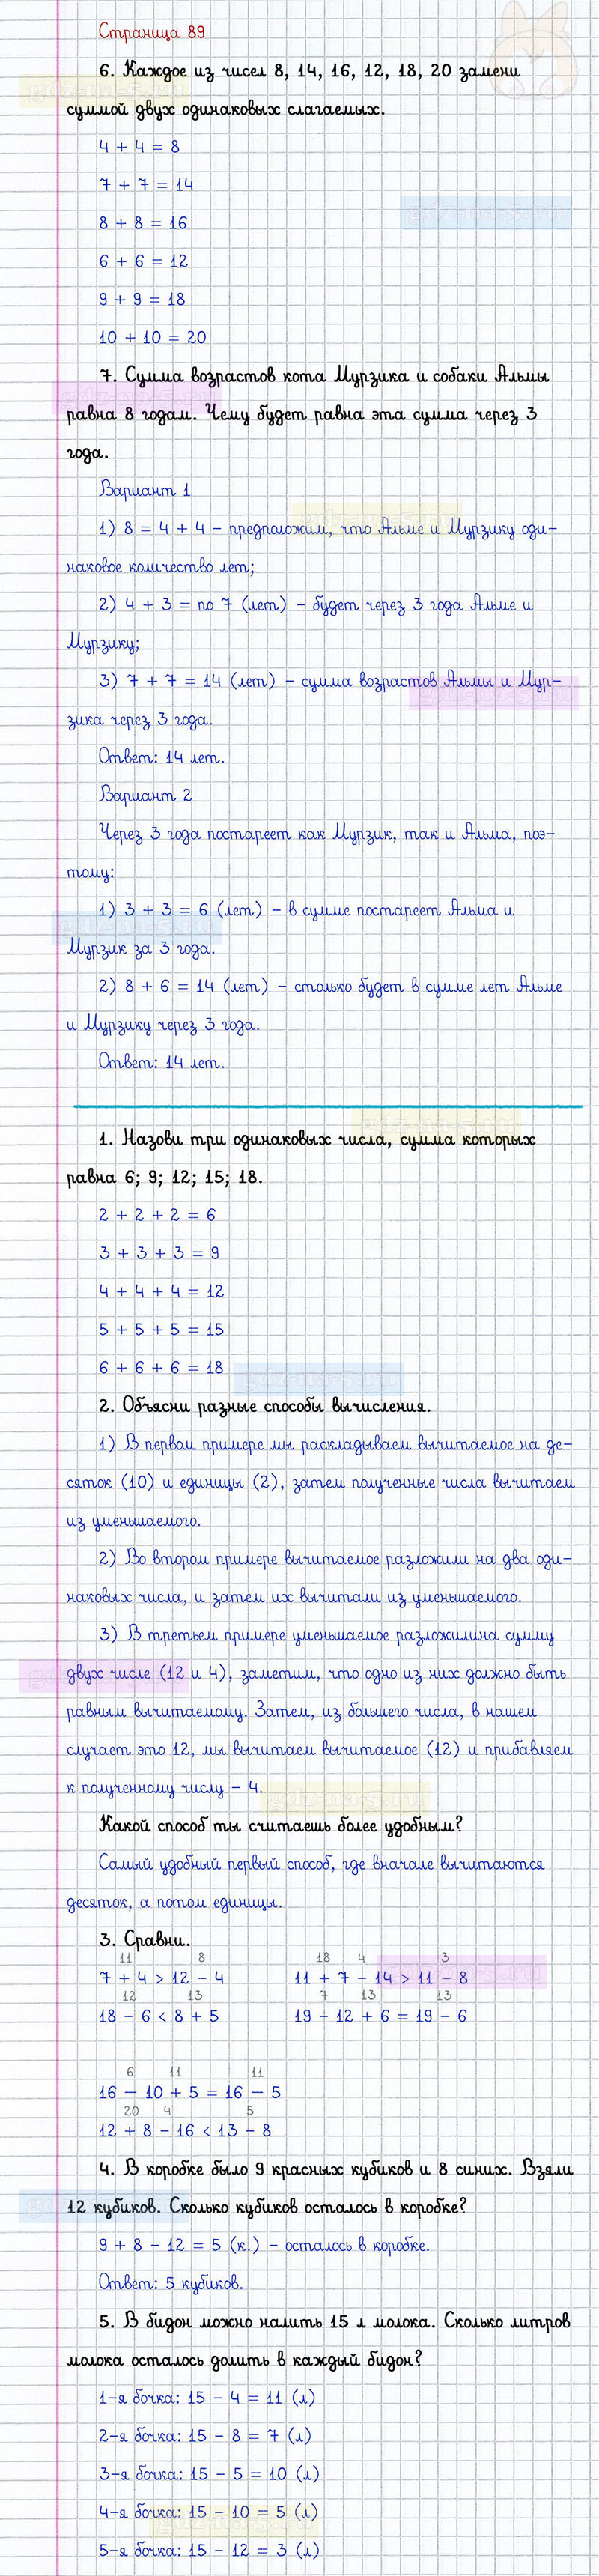 Страница 89
6. Каждое из чисел 8, 14, 16, 12, 18, 20 замени
суммой двух одинаковых слагаемых.
4 + 4 = 8
7 + 7 = 14
8 + 8 = 16
6 + 6 = 12
9 + 9 = 18
10 + 10 = 20
7. Сумма возрастов кота Мурзика и собаки Альмы
равна 8 годам. Чему будет равна эта сумма через 3
года.
Вариант 1
1) 8 = 4 + 4 – предположим, что Альме и Мурзику оди-
наковое количество лет;
2) 4 + 3 = по 7 (лет) – будет через 3 года Альме и
Мурзику;
3) 7 + 7 = 14 (лет) – сумма возрастов Альмы и Мур-
зика через 3 года.
Ответ: 14 лет.
Вариант 2
Через 3 года постареет как Мурзик, так и Альма, поэ-
тому:
1) 3 + 3 = 6 (лет) – в сумме постареет Альма и
Мурзик за 3 года.
2) 8 + 6 = 14 (лет) – столько будет в сумме лет Альме
и Мурзику через 3 года.
Ответ: 14 лет.
1. Назови три одинаковых числа, сумма которых
равна 6; 9; 12; 15; 18.
2 + 2 + 2 = 6
3 + 3 + 3 = 9
4 + 4 + 4 = 12
5 + 5 + 5 = 15
6 + 6 + 6 = 18
2. Объясни разные способы вычисления.
1) В первом примере мы раскладываем вычитаемое на де-
сяток (10) и единицы (2), затем полученные числа вычитаем
из уменьшаемого.
2) Во втором примере вычитаемое разложили на два оди-
наковых числа, и затем их вычитали из уменьшаемого.
3) В третьем примере уменьшаемое разложилина сумму
двух числе (12 и 4), заметим, что одно из них должно быть
равным вычитаемому. Затем, из большего числа, в нашем
случает это 12, мы вычитаем вычитаемое (12) и прибавляем
к полученному числу – 4.
Какой способ ты считаешь более удобным?
Самый удобный первый способ, где вначале вычитаются
десяток, а потом единицы.
3. Сравни.
11 8 18 4 3
7 + 4 > 12 – 4 11 + 7 – 14 > 11 – 8
12 13 7 13 13
18 – 6 < 8 + 5 19 – 12 + 6 = 19 – 6
6 11 11
16 – 10 + 5 = 16 – 5
20 4 5
12 + 8 – 16 < 13 – 8
4. В коробке было 9 красных кубиков и 8 синих. Взяли
12 кубиков. Сколько кубиков осталось в коробке?
9 + 8 – 12 = 5 (к.) – осталось в коробке.
Ответ: 5 кубиков.
5. В бидон можно налить 15 л молока. Сколько литров
молока осталось долить в каждый бидон?
1-я бочка: 15 – 4 = 11 (л)
2-я бочка: 15 – 8 = 7 (л)
3-я бочка: 15 – 5 = 10 (л)
4-я бочка: 15 – 10 = 5 (л)
5-я бочка: 15 – 12 = 3 (л)